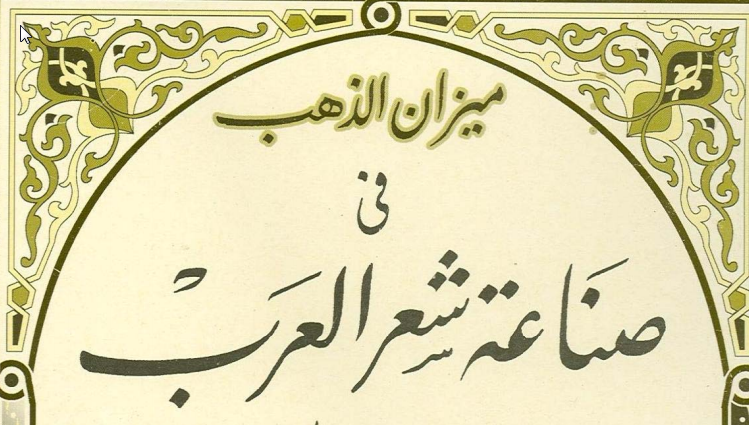 ميزان الذهب
في
صناعة شعر العرب